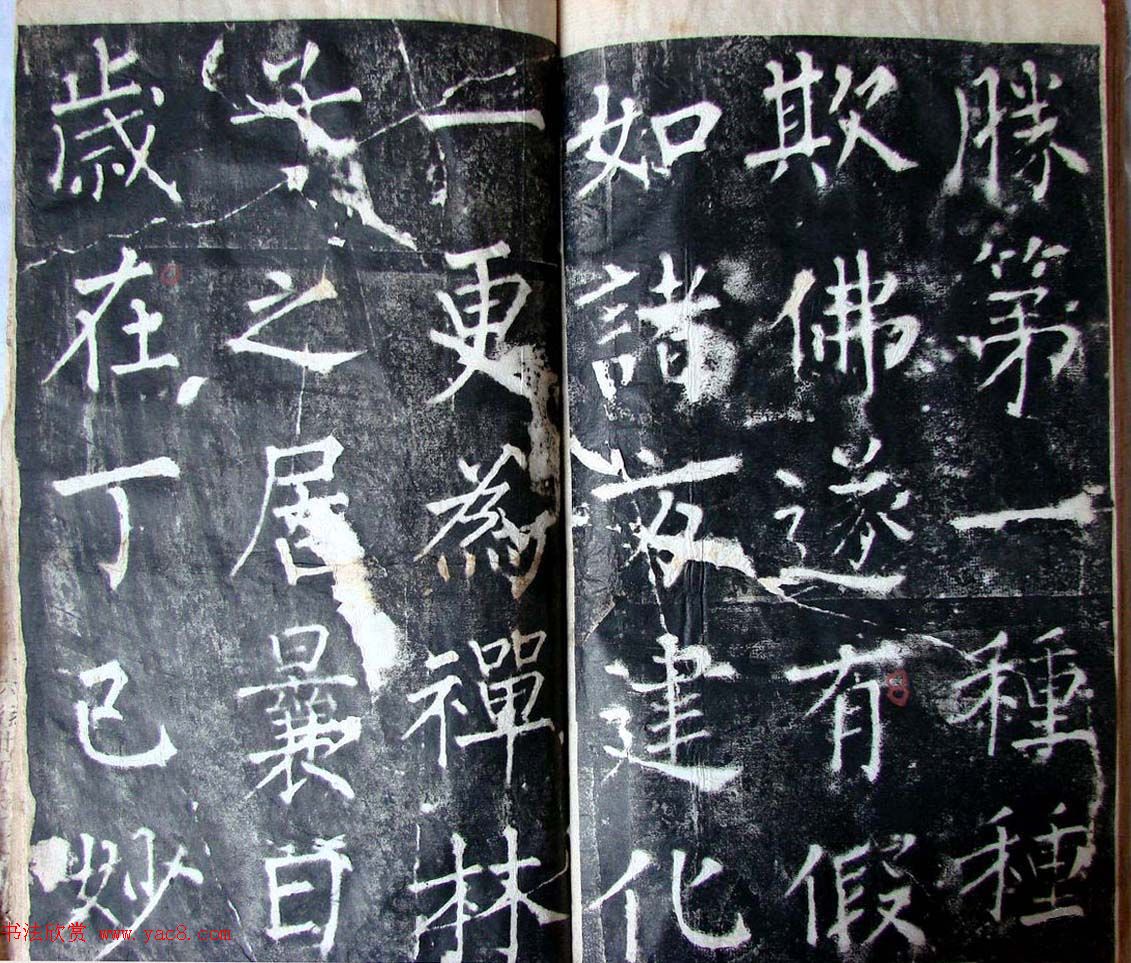 勝第一種種
欺佛遂有假
如諸建化
更為禪林
之居曩日
歲在丁巳妙
书法欣赏 www.yac8.com